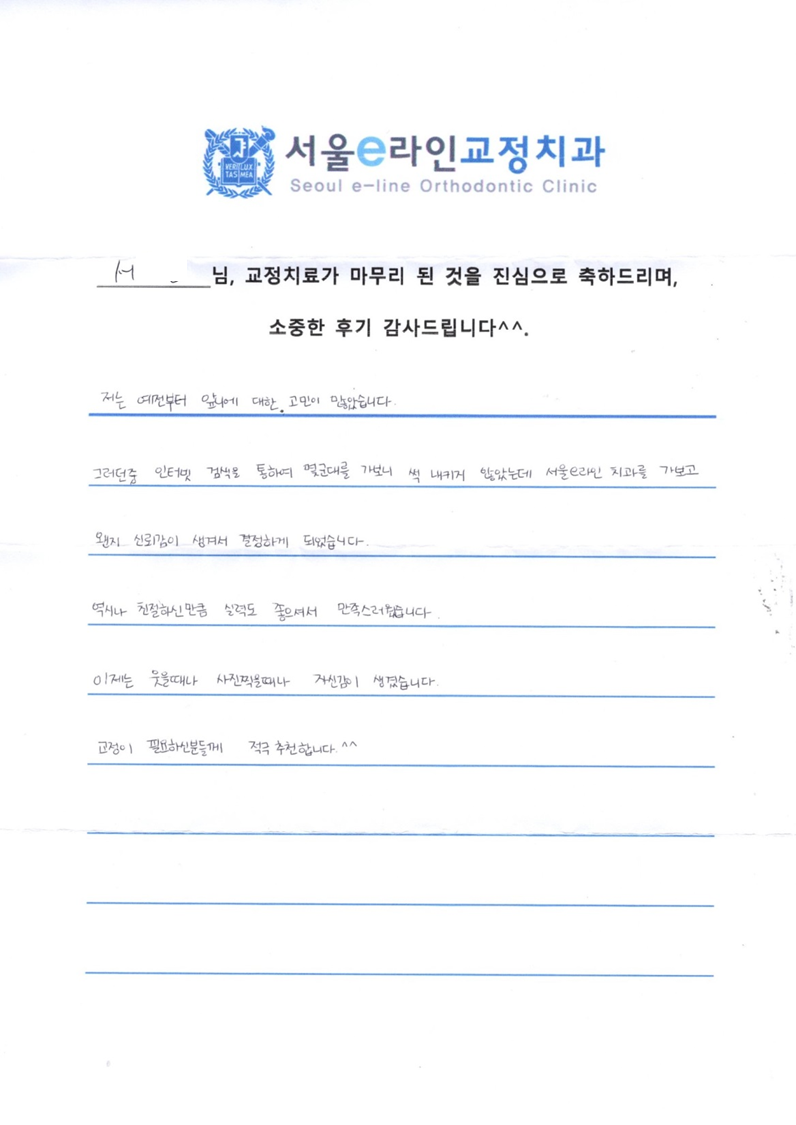 VERI LUX
TAS MEA
서울e라인교정치과
Seoul e-line Orthodontic Clinic
서 님, 교정치료가 마무리 된 것을 진심으로 축하드리며,
소중한 후기 감사드립니다^^.
저는 예전부터 앞니에 대한 고민이 많았습니다.
그러던중 인터넷 검색을 통하여 몇군데를 가보니 썩 내키지 않았는데 서울e라인 치과를 가보고
왠지 신뢰감이 생겨서 결정하게 되었습니다.
역시나 친절하신만큼 실력도 좋으셔서 만족스러웠습니다.
이제는 웃을때나 사진찍을때나 자신감이 생겼습니다.
교정이 필요하신분들께 적극 추천합니다.^^